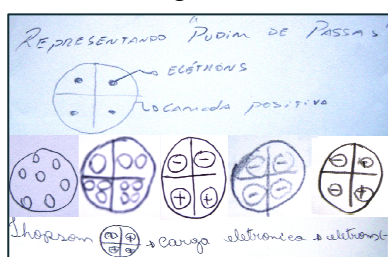 REPRESENTANDO "PUDIM DE PASSAS"
ELÉTRONS
CAMADA POSITIVA
- -
+ +
- -
- -
- -
+ +
Thopsom + carga eletronica